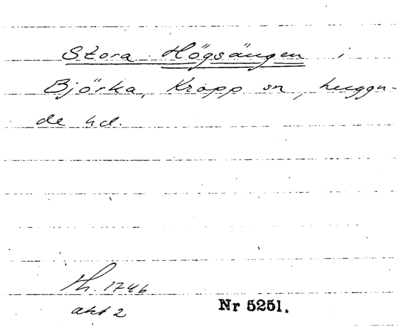 Stora Högsängen i
Björka, Kropp sn, luggu-
de hd.
Lh. 1746
akt 2
Nr 5251.